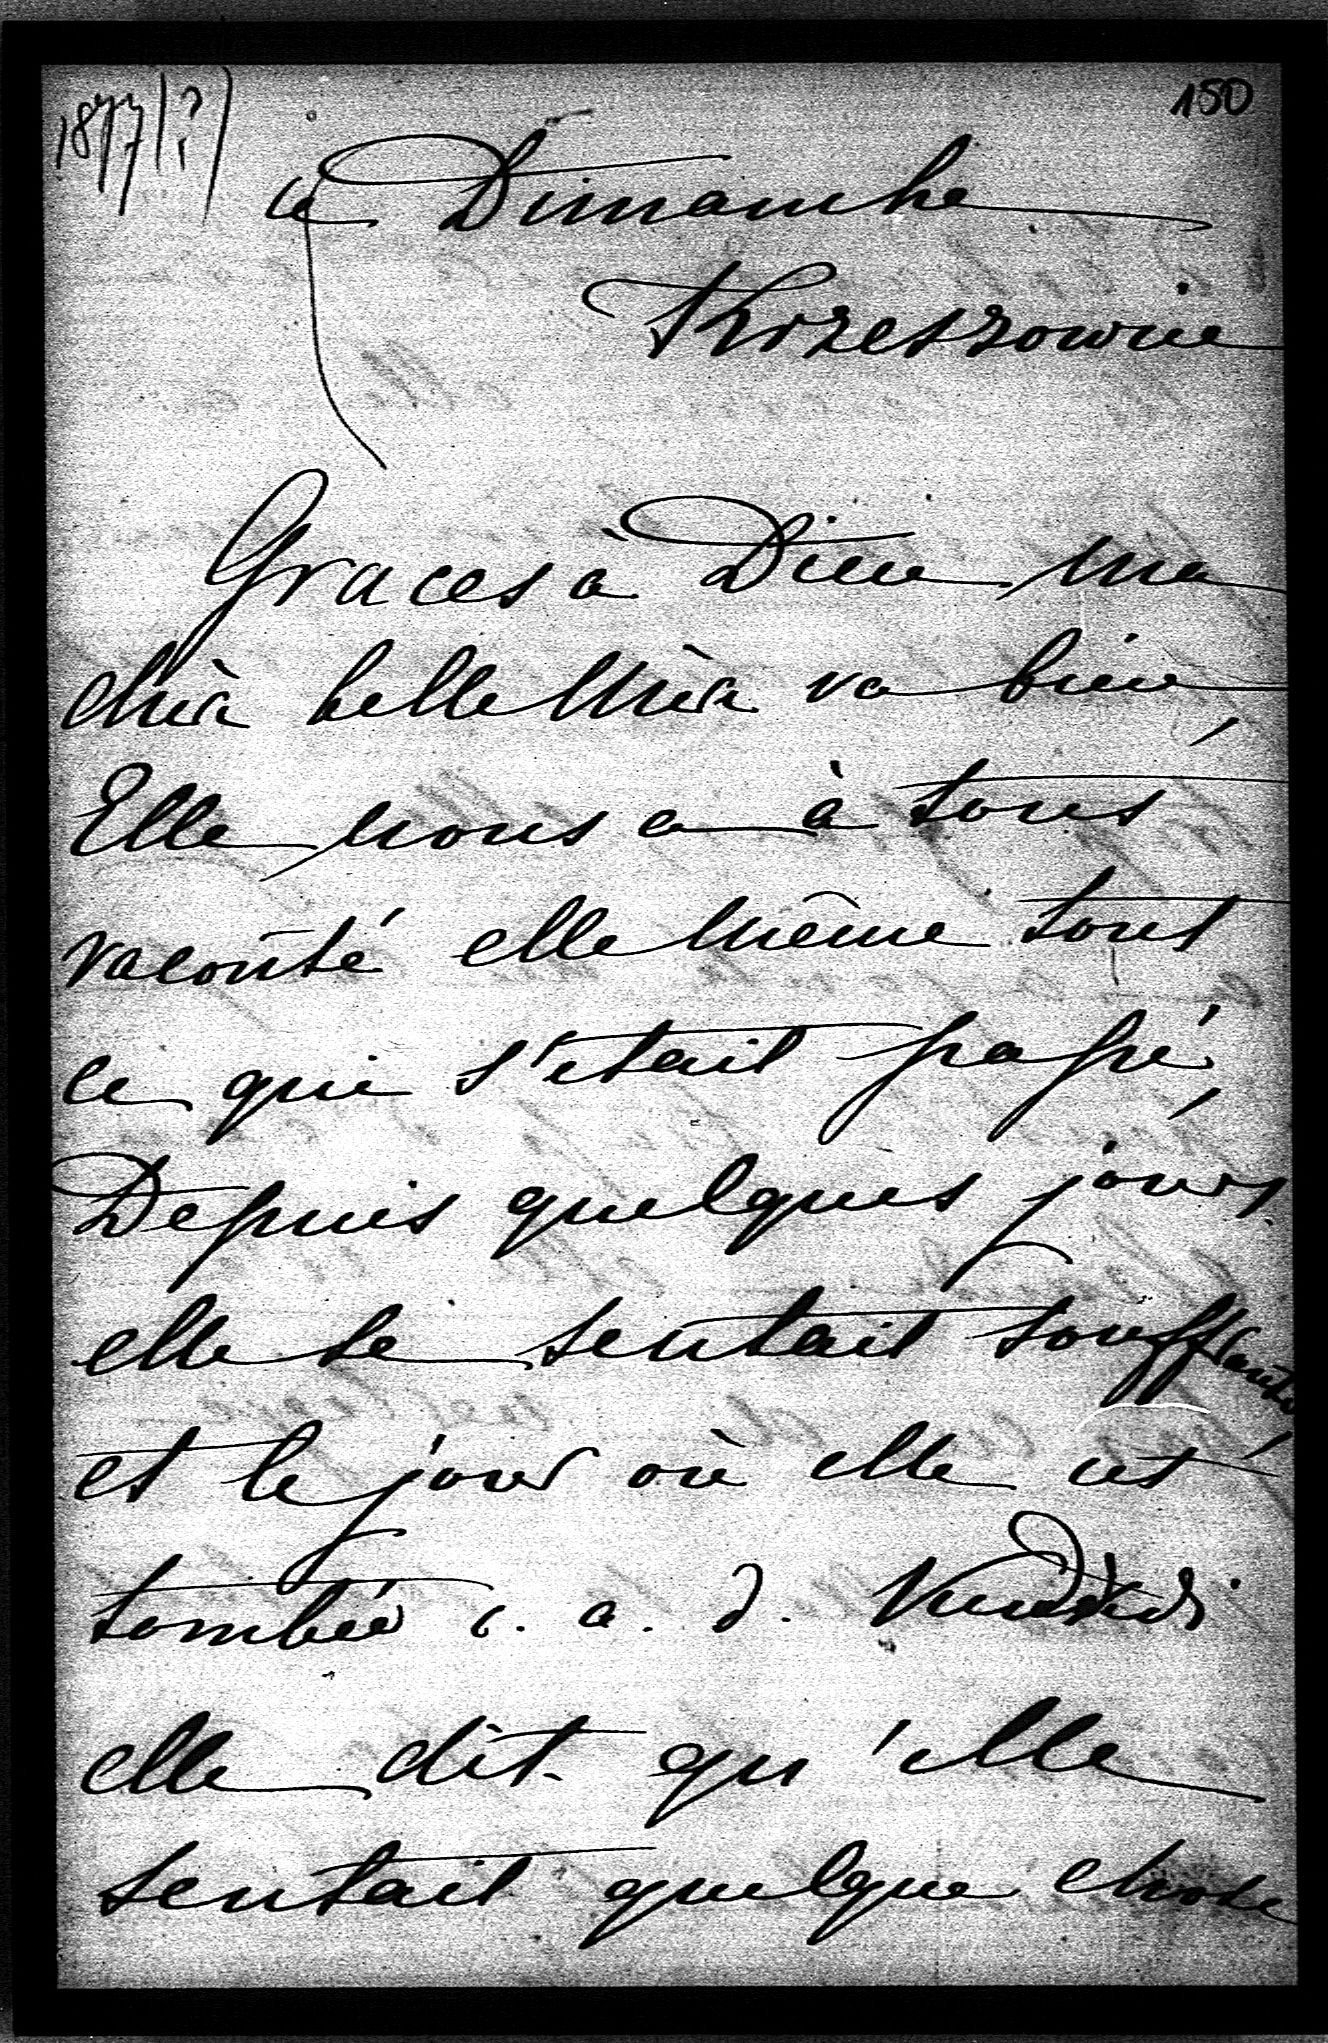 1877(?)
150
ce Dimanche
Krzeszowice
Graces à Dieu ma
chère belle Mère va bien,
Elle nous a à tous
raconté elle même tout
ce qui s'etait passé,
Depuis quelques jours
elle se sentait souffrante
et le jour où elle est
tombée c. a. d. Vendredi
elle dit qu'elle
sentait quelque chose